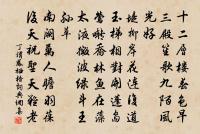 十二層樓春色早
三殿笙歌九陌風
光好
堤柳岸花連復道
玉梯相對開蓬島
鶯囀喬林魚在藻
太液微波綠斗王
孫草
南闕萬人瞻羽葆
後天祝聖天難老
丁謂鳳棲梧